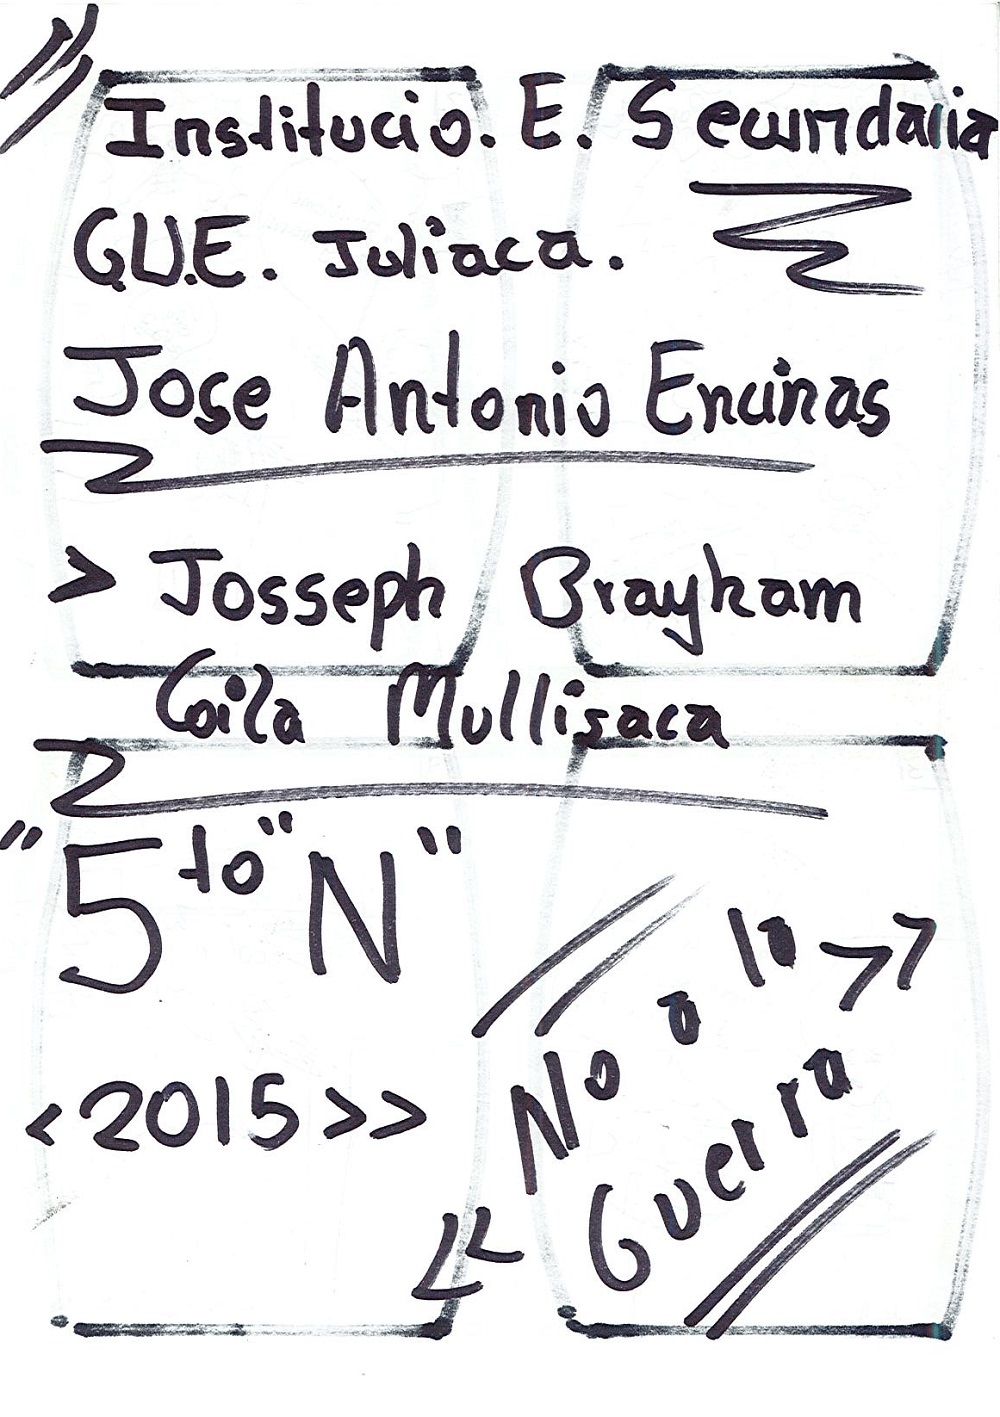 Institucio. E. Secundaria
G.U.E. Juliaca.
Jose Antonio Encinas
> Josseph Brayham
Coila Mullisaca
"5to" N"
<2015>>
<< No a la >>
Guerra